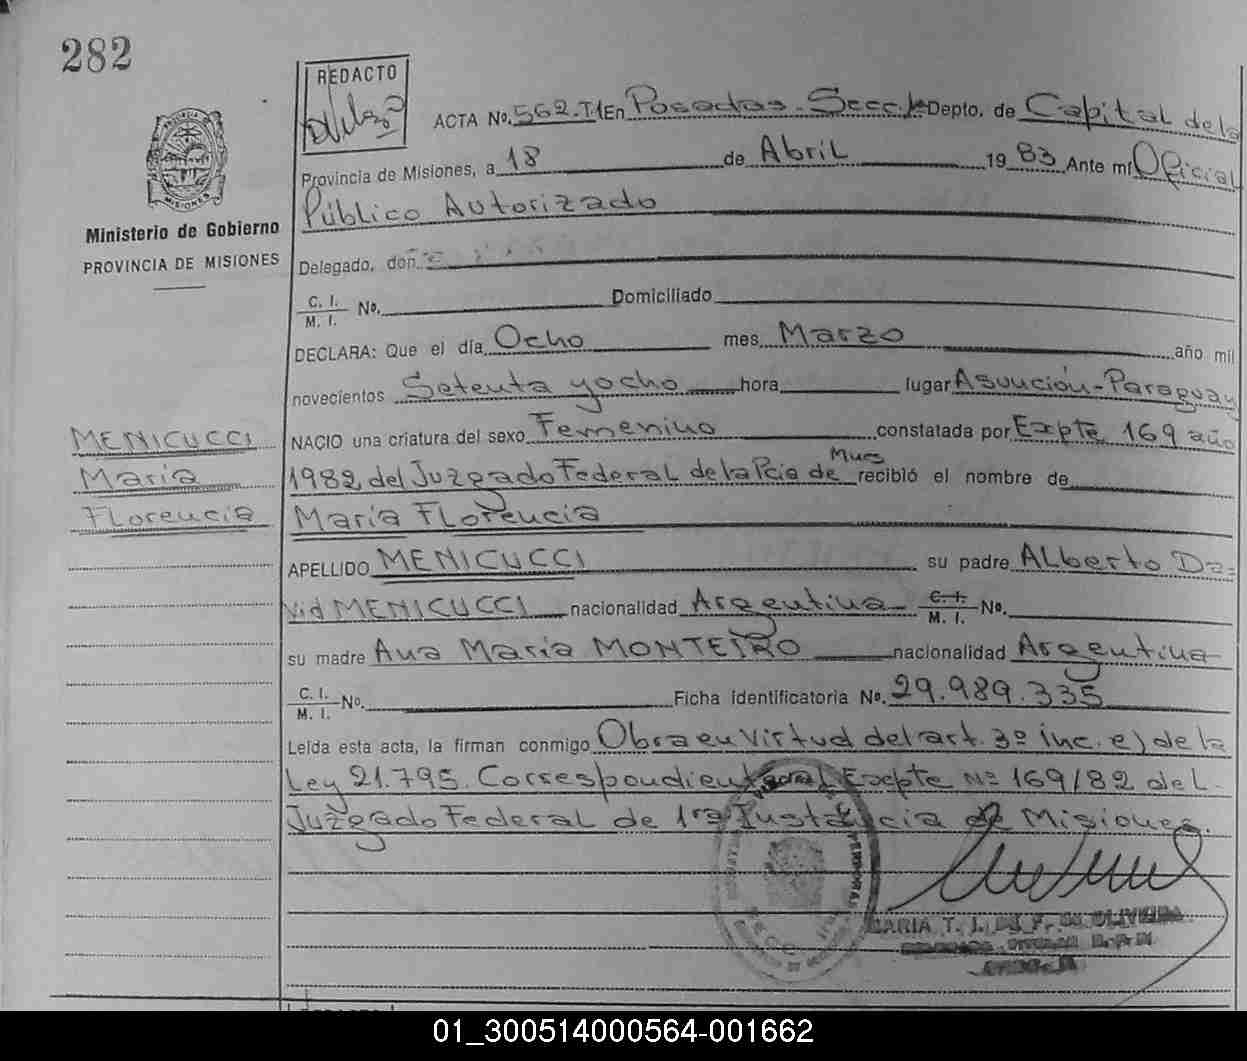 282
REDACTO
ACTA No. 562.T1 En Posadas - Secc. 1a Depto. de Capital de la
Provincia de Misiones, a 18 de Abril 1983 Ante mí Oficial
Público Autorizado
MISIONES
Ministerio de Gobierno
PROVINCIA DE MISIONES
Delegado, don
C. I.
M. I. No. Domiciliado
DECLARA: Que el día Ocho mes Marzo año mil
novecientos Setenta y ocho hora lugar Asunción - Paraguay
NACIO una criatura del sexo Femenino constatada por Expte 169 año
1982 del Juzgado Federal de la Pcia de Mnes recibió el nombre de
María Florencia
MENICUCCI
María
Florencia
APELLIDO MENICUCCI su padre Alberto Da=
vid MENICUCCI nacionalidad Argentina C. I.
M. I. No.
su madre Ana María MONTEIRO nacionalidad Argentina
C. I.
M. I. No. Ficha identificatoria No. 29.989.335
Leída esta acta, la firman conmigo Obra en virtud del art. 3º inc. e) de la
Ley 21.795. Correspondiente al Expte Nº 169/82 del
Juzgado Federal de 1ra Instancia de Misiones.
MARIA T. OLIVEIRA
01_300514000564-001662